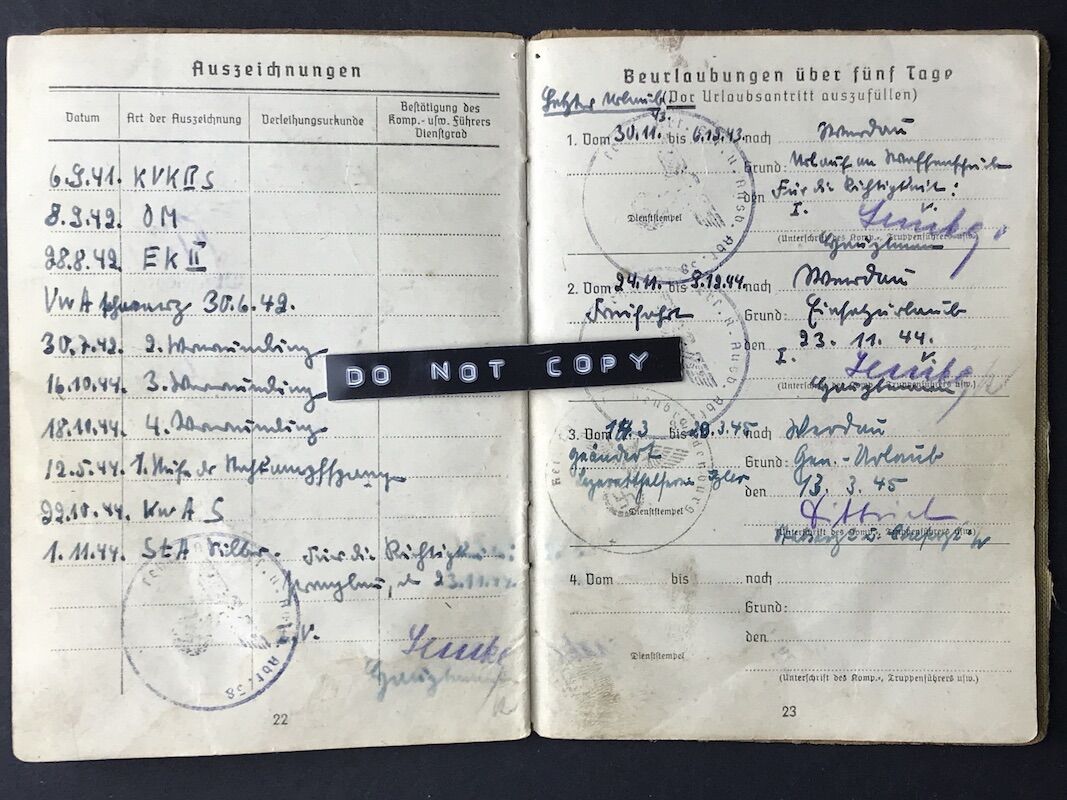 Auszeichnungen
Datum Art der Auszeichnung Verleihungsurkunde Bestätigung des Komp.- usw. Führers Dienstgrad
6.9.41. KVK II S
8.9.42. OM
28.8.42 EK II
VwA schwarz 30.6.42.
30.7.42. 2. Verwundung
16.10.44. 3. Verwundung
18.10.44. 4. Verwundung
12.5.44. 1. Stufe der Nahkampfspange
22.10.44. VwA S
1.11.44. StA Silber. Für die Richtigkeit:
23.11.44.
I.V.
22
DO NOT COPY
Beurlaubungen über fünf Tage
Letzter Urlaub (Vor Urlaubsantritt auszufüllen)
1. Vom 30.11. 43. bis 6.12.43. nach Werdau
Grund: Urlaub an
den Für die Richtigkeit:
I.
Dienststempel
(Unterschrift des Komp.-, Truppenführers usw.)
Hauptmann
2. Vom 24.11. bis 9.12.44. nach Werdau
Freifahrt Grund: Einsatzurlaub
den 23. 11. 44.
I.
(Unterschrift des Komp.-, Truppenführers usw.)
Hauptmann
3. Vom 14.3 bis 29.3.45 nach Werdau
geändert Grund: Gen.-Urlaub
den 13. 3. 45
Dienststempel
Dittrich
(Unterschrift des Komp.-, Truppenführers usw.)
4. Vom bis nach
Grund:
den
Dienststempel
(Unterschrift des Komp.-, Truppenführers usw.)
23